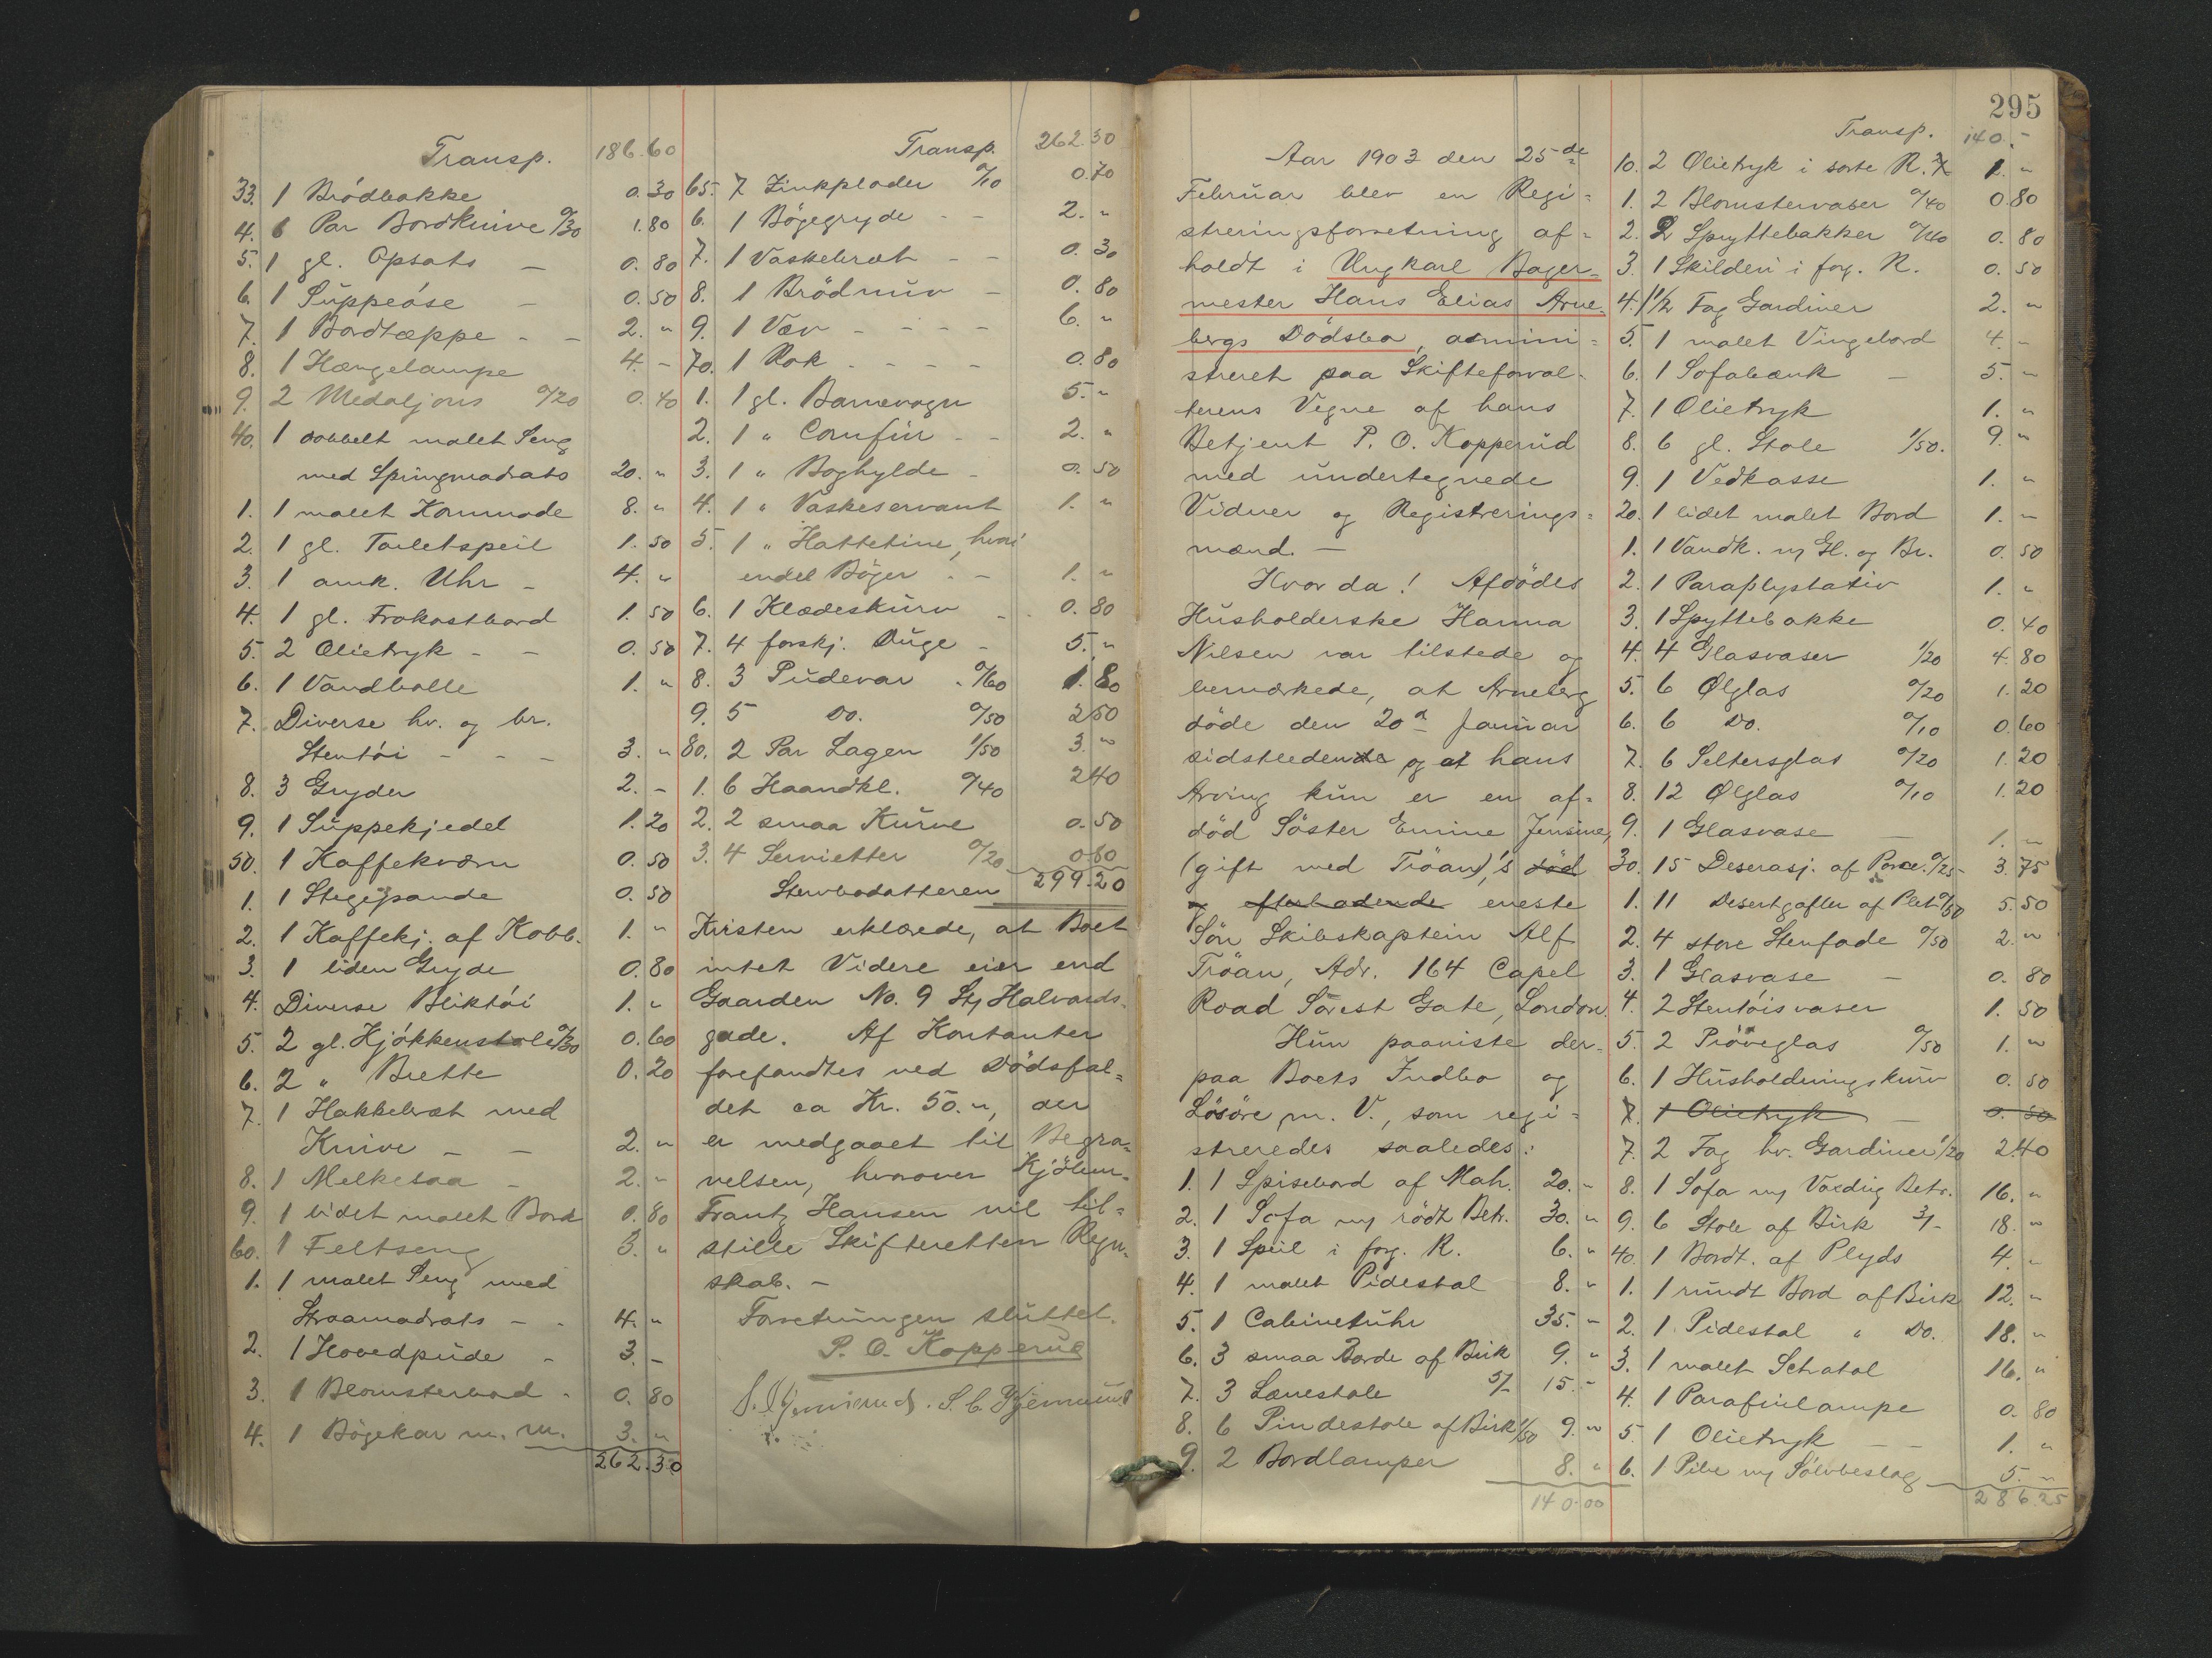 Transp. 186.60
33. 1 Brödbakke 0.30
4. 6 Par Bordknive 0/30 1.80
5. 1 gl. Opsats — 0.80
6. 1 Suppeöse — 0.50
7. 1 Bordtæppe - - 2. "
8. 1 Hængelampe 4. -
9. 2 Medaljons 0/20 0.40
40. 1 dobbelt malet Seng
med Springmadrats 20. "
1. 1 malet Kommode 8. "
2. 1 gl. Toiletspeil 1.50
3. 1 amk. Uhr - 4. "
4. 1 gl. Frokostbord 1.50
5. 2 Olietryk - - 0.50
6. 1 Vandbolle 1. "
7. Diverse hv. og br.
Stentöi - - - 3. "
8. 3 Gryder 2. -
9. 1 Suppekjedel 1.20
50. 1 Kaffekværn 0.50
1. 1 Stegepande 0.50
2. 1 Kaffekj. af Kobb. 1. "
3. 1 liden Gryde 0.80
4. Diverse Bliktöi 1. "
5. 2 gl. Kjökkenstole 0/30 0.60
6. 2 " Brette 0.20
7. 1 Hakkebræt med
Knive - - 2. "
8. 1 Melkesaa - 2. "
9. 1 lidet malet Bord 0.80
60. 1 Feltseng 3. "
1. 1 malet Seng med
Straamadrats - - 4. "
2. 1 Hovedpude - 3. -
3. 1 Blomsterbord - 0.80
4. 1 Bögekar m. m. 3. "
262.30
Transp. 262.30
65. 7 Zinkplader 0/10 0.70
6. 1 Bögegryde - - 2. "
7. 1 Vaskebræt - - 0.30
8. 1 Brödnuv - 0.80
9. 1 Væv - - - - 6. "
70. 1 Rok - - - - 0.80
1. 1 gl. Barnevogn 5. "
2. 1 " Comfür - - 2. "
3. 1 " Boghylde - 0.50
4. 1 " Vaskeservant 1. "
5. 1 " Hattetine, hvori
endel Böger - - 1. "
6. 1 Klædeskurv - - 0.80
7. 4 forskj. Duge - 5. "
8. 3 Pudevar - 0/60 1.80
9. 5 Do. 0/50 2.50
80. 2 Par Lagen 1/50 3. "
1. 6 Haandkl. 0/40 2.40
2. 2 smaa Kurve 0.50
3. 4 Servietter 0/20 0.80
299.20
Stervbodatteren
Kirsten erklærede, at Boet
intet Videre eier end
Gaarden No. 9 St. Halvards-
gade. Af Kontanter
forefandtes ved Dödsfal-
det ca Kr. 50. ", der
er medgaaet til Begra-
velsen, hvorover Kjölem.
Frantz Hansen vil til-
stille Skifteretten Regn-
skab. -
Forretningen sluttet.
P. O. Kopperud
295
Aar 1903 den 25de
Februar blev en Regi-
streringsforretning af-
holdt i Ungkarl Bager-
mester Hans Elias Arne-
bergs Dödsbo, admini-
streret paa Skifteforval-
terens Vegne af hans
Betjent P. O. Kopperud
med undertegnede
Vidner og Registrerings-
mænd. —
Hvor da! Afdödes
Husholderske Hanna
Nilsen var tilstede og
bemærkede, at Arneberg
döde den 20d Januar
sidstleden og at hans
Arving kun er en af-
död Söster Emine Jensine,
(gift med Tröan)'s död
og efterladende eneste
Sön Skibskaptein Alf
Tröan, Adr. 164 Capel
Road Forest Gate, London.
Hun paaviste der-
paa Boets Indbo og
Lösöre m. V., som regi-
streredes saaledes:
1. 1 Spisebord af Mah. 20. "
2. 1 Sofa m/ rödt Betr. 30. "
3. 1 Speil i forg. R. 6. "
4. 1 malet Pidestal 8. "
5. 1 Cabinetuhr 35. "
6. 3 smaa Borde af Birk 9. "
7. 3 Lænestole 5/- 15. -
8. 6 Pindestole af Birk 1/50 9. "
9. 2 Bordlamper 8. "
140.00
Transp. 140. -
10. 2 Olietryk i sorte R. 1. "
1. 2 Blomstervaser 0/40 0.80
2. 2 Spyttebakker 0/40 0.80
3. 1 Skilderi i forg. R. 0.50
4. 1 1/2 Fag Gardiner 2. "
5. 1 malet Vingebord 4. -
6. 1 Sofabænk — 5. "
7. 1 Olietryk 1. "
8. 6 gl. Stole 1/50. 9. "
9. 1 Vedkasse 1. "
20. 1 lidet malet Bord 1. "
1. 1 Vandk. m/ Gl. og Br. 0.50
2. 1 Paraplystativ 1. "
3. 1 Spyttebakke 0.40
4. 4 Glasvaser 1/20 4.80
5. 6 Ølglas 0/20 1.20
6. 6 Do. 0/10 0.60
7. 6 Seltersglas 0/20 1.20
8. 12 Ølglas 0/10 1.20
9. 1 Glasvase — 1. "
30. 15 Deserasj. af Porce. 0/25 3.75
1. 11 Desertgafler af Plet 0/50 5.50
2. 4 store Stenfade 0/50 2. "
3. 1 Glasvase — 0.80
4. 2 Stentöisvaser 1.50
5. 2 Pröveglas 0/50 1. "
6. 1 Husholdningskurv 0.50
7. 1 Olietryk — 0.50
7. 2 Fag hv. Gardiner 1/20 2.40
8. 1 Sofa m/ Voxdug Betr. 16. "
9. 6 Stole af Birk 3/- 18. "
40. 1 Bordt. af Plyds 4. "
1. 1 rundt Bord af Birk 12. "
2. 1 Pidestal " Do. 18. "
3. 1 malet Schatol 16. "
4. 1 Parafinlampe 0.80
5. 1 Olietryk — — 1. "
6. 1 Pibe m/ Sölvbeslag 5. "
286.25